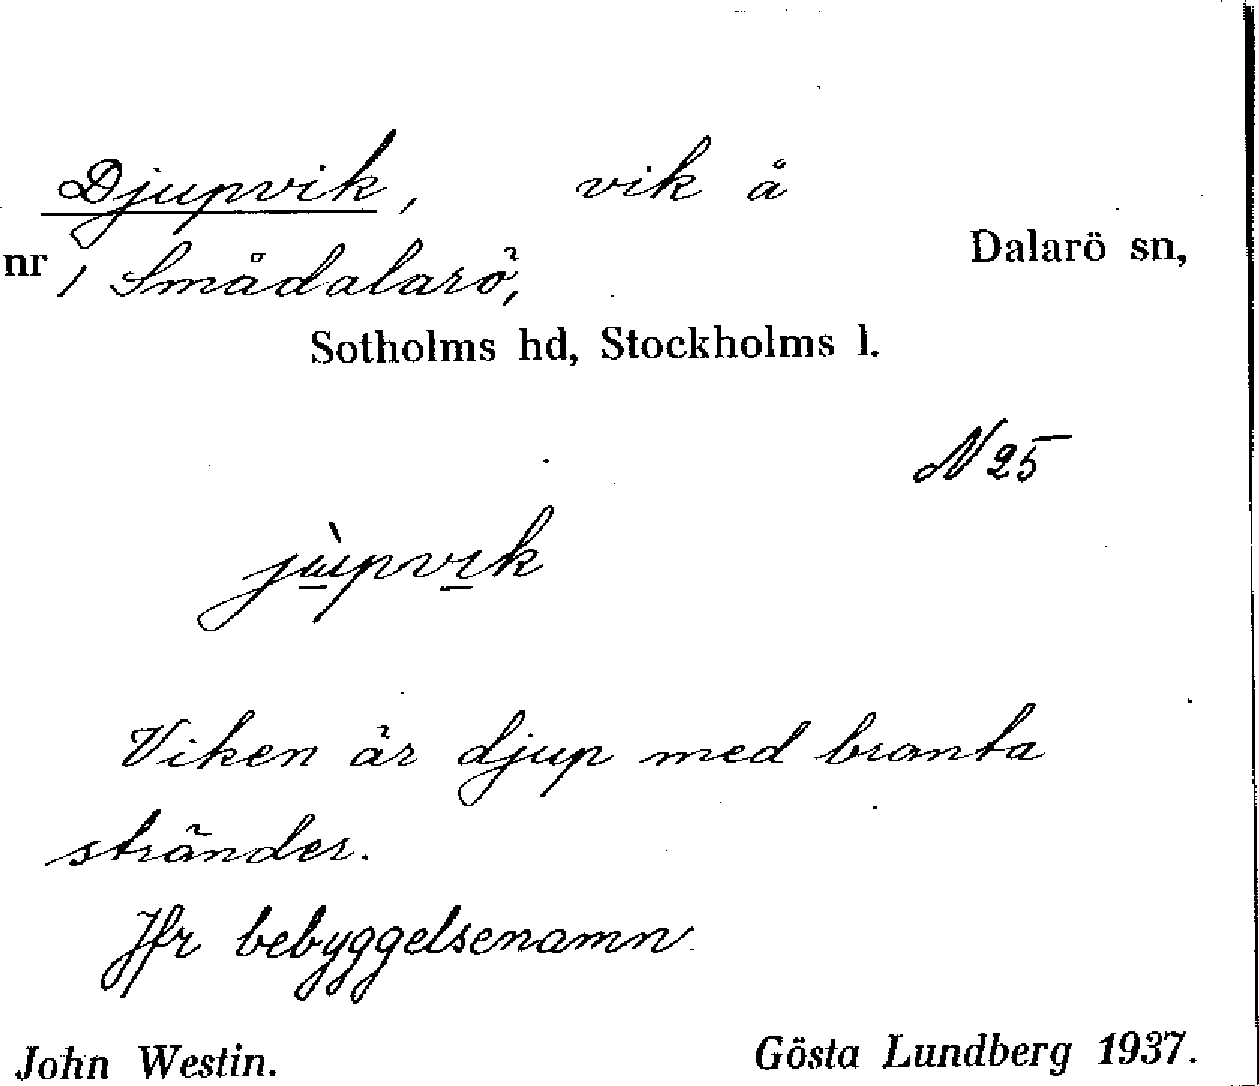 Djupvik, vik å
nr 1 Smådalarö, Dalarö sn,
Sotholms hd, Stockholms l.
N 25
jùpvik
Viken är djup med branta
stränder.
Jfr bebyggelsenamn.
John Westin. Gösta Lundberg 1937.